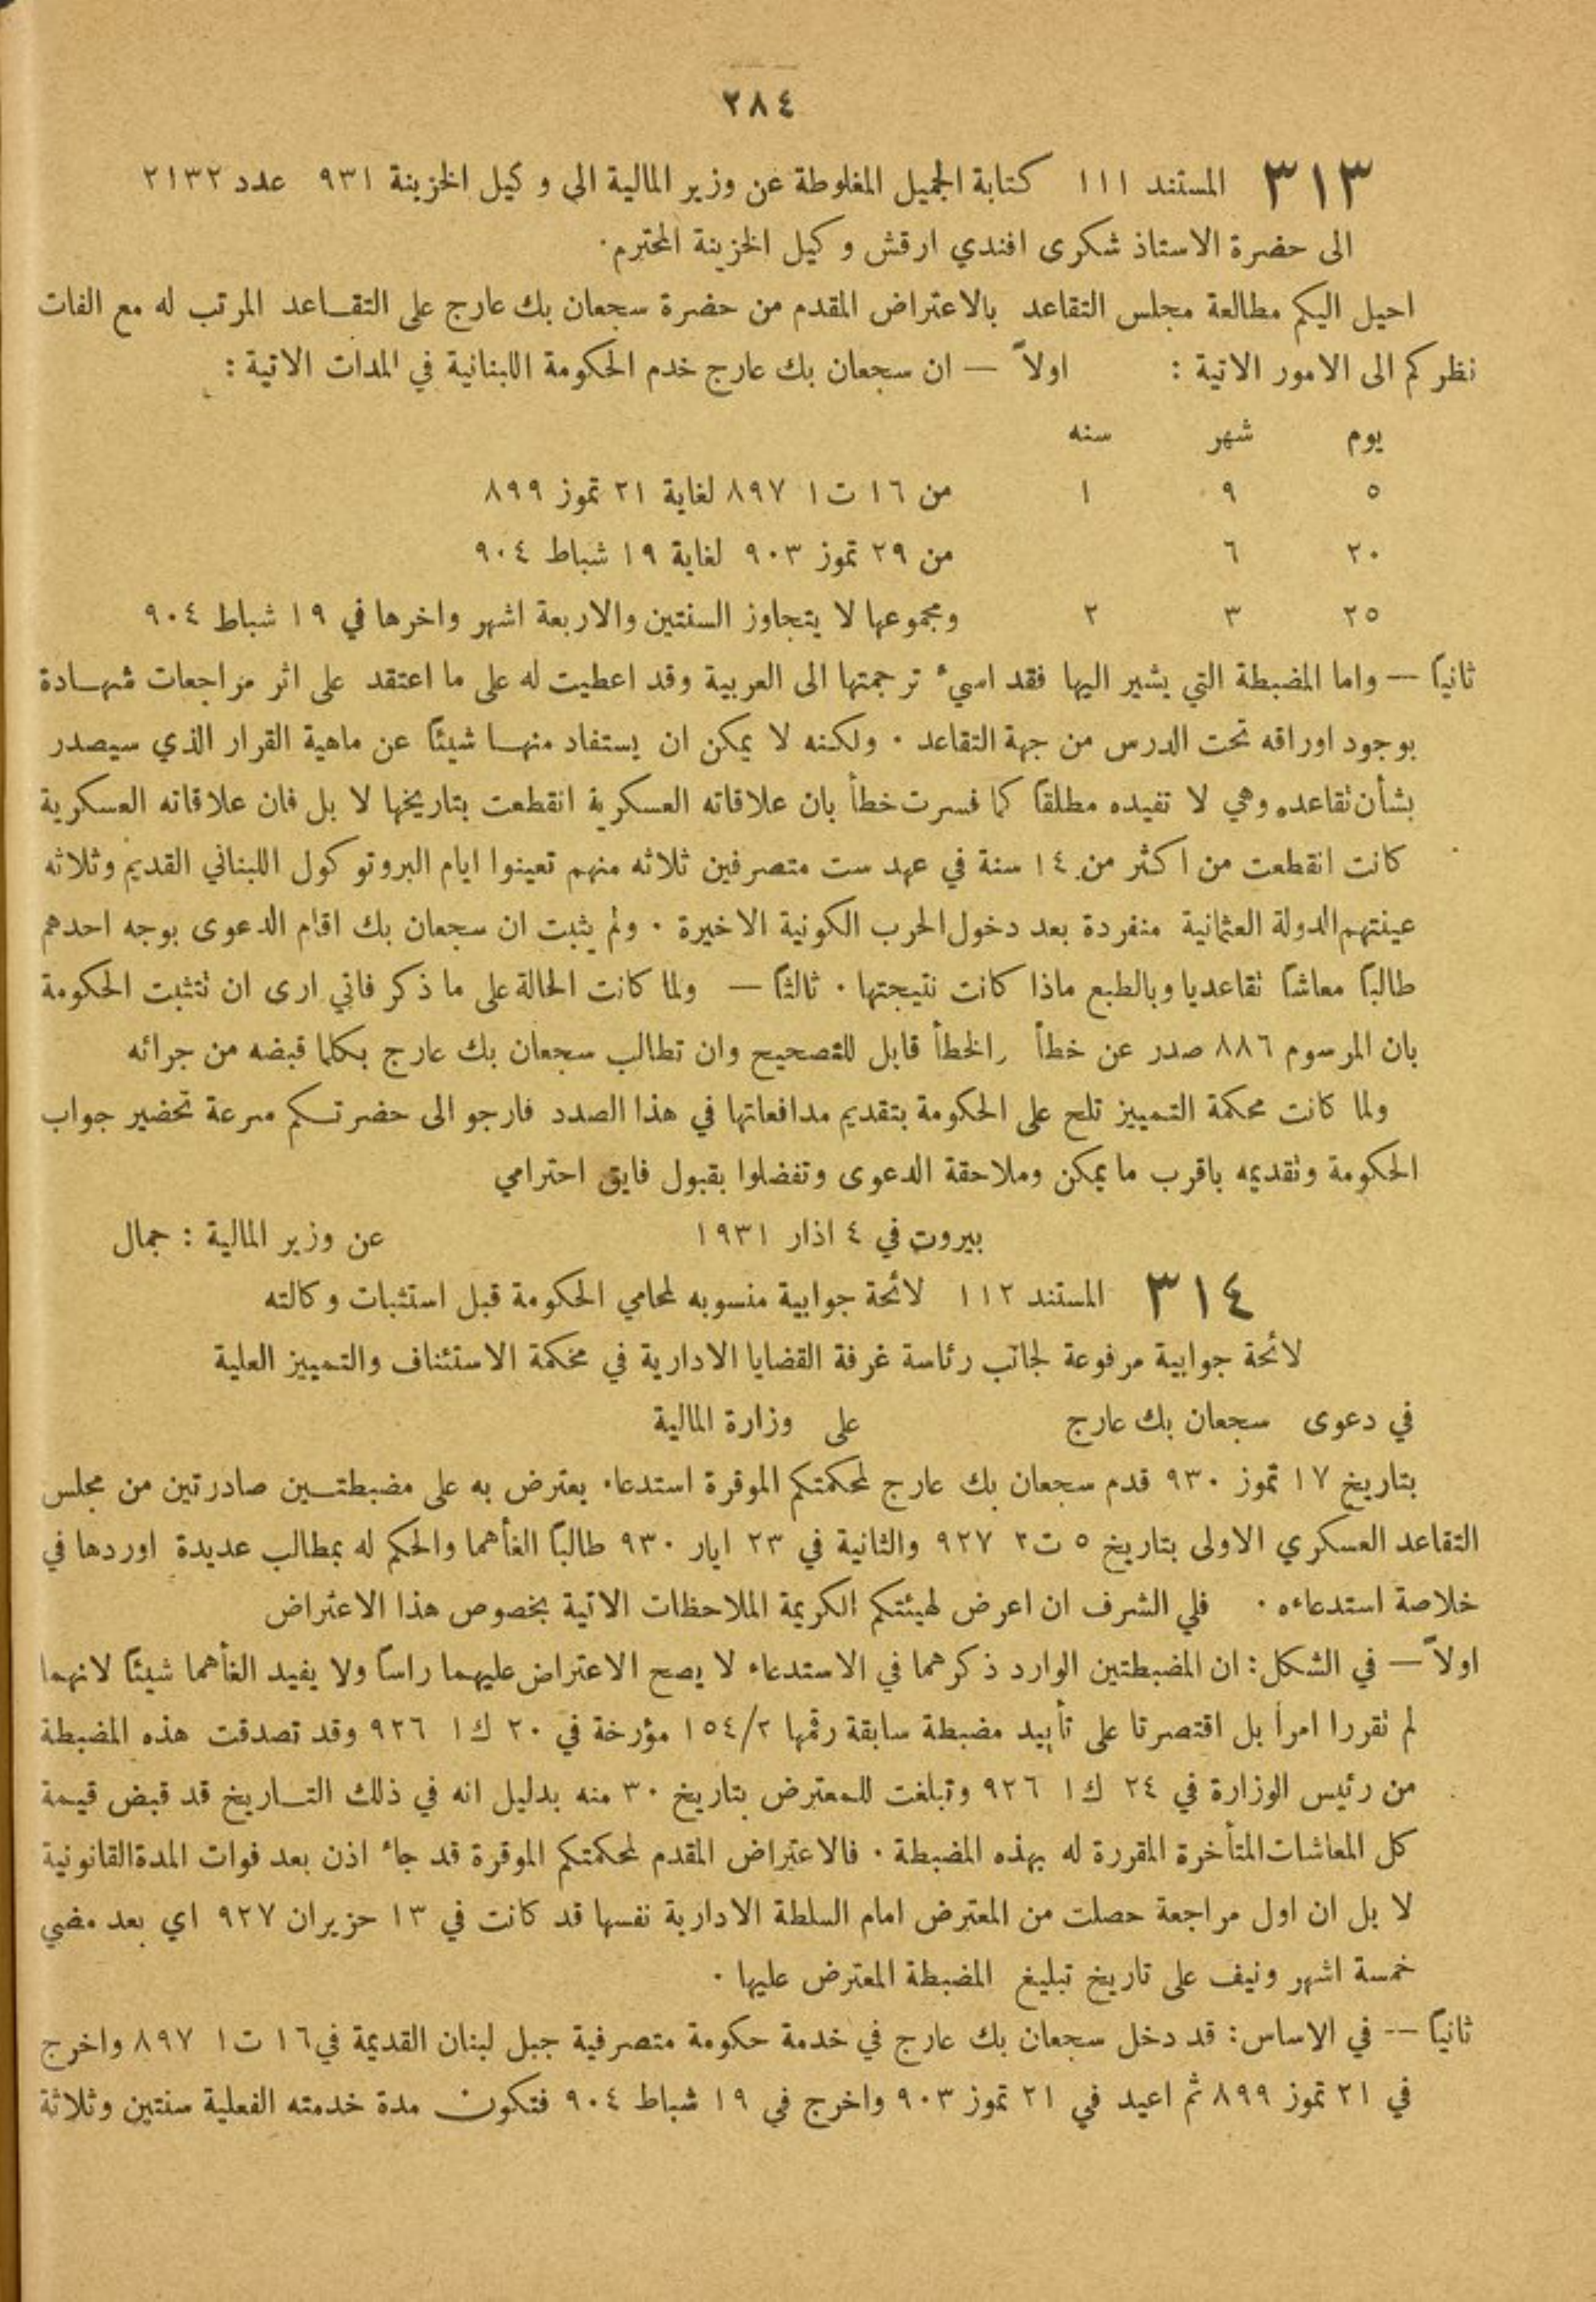 ٢٨٤
٣١٣ المستند ١١١ كتابة الجميل المغلوطة عن وزير المالية الى وكيل الخزينة ٩٣١ عدد ٢١٣٢
الى حضرة الاستاذ شكرى افندي ارقش وكيل الخزينة المحترم·
احيل اليكم مطالعة مجلس التقاعد بالاعتراض المقدم من حضرة سجعان بك عارج على التقاعد المرتب له مع الفات
نظركم الى الامور الاتية : اولاً — ان سجعان بك عارج خدم الحكومة اللبنانية في المدات الاتية :
يوم شهر سنه
٥ ٩ ١ من ١٦ ت١ ٨٩٧ لغاية ٢١ تموز ٨٩٩
٢٠ ٦ من ٢٩ تموز ٩٠٣ لغاية ١٩ شباط ٩٠٤
٢٥ ٣ ٢ ومجموعها لا يتجاوز السنتين والاربعة اشهر واخرها في ١٩ شباط ٩٠٤
ثانياً — واما المضبطة التي يشير اليها فقد اسيء ترجمتها الى العربية وقد اعطيت له على ما اعتقد على اثر مراجعات شهادة
بوجود اوراقه تحت الدرس من جهة التقاعد · ولكنه لا يمكن ان يستفاد منها شيئاً عن ماهية القرار الذي سيصدر
بشأن تقاعده وهي لا تفيده مطلقاً كما فسرت خطأ بان علاقاته العسكرية انقطعت بتاريخها لا بل فان علاقاته العسكرية
كانت انقطعت من اكثر من ١٤ سنة في عهد ست متصرفين ثلاثه منهم تعينوا ايام البروتوكول اللبناني القديم وثلاثه
عينتهم الدولة العثمانية منفردة بعد دخول الحرب الكونية الاخيرة · ولم يثبت ان سجعان بك اقام الدعوى بوجه احدهم
طالباً معاشاً تقاعديا وبالطبع ماذا كانت نتيجتها · ثالثاً — ولما كانت الحالة على ما ذكر فاني ارى ان تتثبت الحكومة
بان المرسوم ٨٨٦ صدر عن خطأ والخطأ قابل للتصحيح وان تطالب سجعان بك عارج بكلما قبضه من جرائه
ولما كانت محكمة التمييز تلح على الحكومة بتقديم مدافعاتها في هذا الصدد فارجو الى حضرتكم سرعة تحضير جواب
الحكومة وتقديمه باقرب ما يمكن وملاحقة الدعوى وتفضلوا بقبول فايق احترامي
بيروت في ٤ اذار ١٩٣١ عن وزير المالية : جمال
٣١٤ المستند ١١٢ لائحة جوابية منسوبه لمحامي الحكومة قبل استثبات وكالته
لائحة جوابية مرفوعة لجانب رئاسة غرفة القضايا الادارية في محكمة الاستئناف والتمييز العلية
في دعوى سجعان بك عارج على وزارة المالية
بتاريخ ١٧ تموز ٩٣٠ قدم سجعان بك عارج لمحكمتكم الموقرة استدعاء يعترض به على مضبطتين صادرتين من مجلس
التقاعد العسكري الاولى بتاريخ ٥ ت٢ ٩٢٧ والثانية في ٢٣ ايار ٩٣٠ طالباً الغأهما والحكم له بمطالب عديدة اوردها في
خلاصة استدعاءه · فلي الشرف ان اعرض لهيئتكم الكريمة الملاحظات الاتية بخصوص هذا الاعتراض
اولاً — في الشكل: ان المضبطتين الوارد ذكرهما في الاستدعاء لا يصح الاعتراض عليهما راساً ولا يفيد الغأهما شيئاً لانهما
لم تقررا امراً بل اقتصرتا على تأييد مضبطة سابقة رقمها ١٥٤/٢ مؤرخة في ٢٠ ك١ ٩٢٦ وقد تصدقت هذه المضبطة
من رئيس الوزارة في ٢٤ ك١ ٩٢٦ وتبلغت للمعترض بتاريخ ٣٠ منه بدليل انه في ذلك التاريخ قد قبض قيمة
كل المعاشات المتأخرة المقررة له بهذه المضبطة · فالاعتراض المقدم لمحكمتكم الموقرة قد جاء اذن بعد فوات المدة القانونية
لا بل ان اول مراجعة حصلت من المعترض امام السلطة الادارية نفسها قد كانت في ١٣ حزيران ٩٢٧ اي بعد مضي
خمسة اشهر ونيف على تاريخ تبليغ المضبطة المعترض عليها ·
ثانياً -- في الاساس: قد دخل سجعان بك عارج في خدمة حكومة متصرفية جبل لبنان القديمة في ١٦ ت١ ٨٩٧ واخرج
في ٢١ تموز ٨٩٩ ثم اعيد في ٢١ تموز ٩٠٣ واخرج في ١٩ شباط ٩٠٤ فتكون مدة خدمته الفعلية سنتين وثلاثة